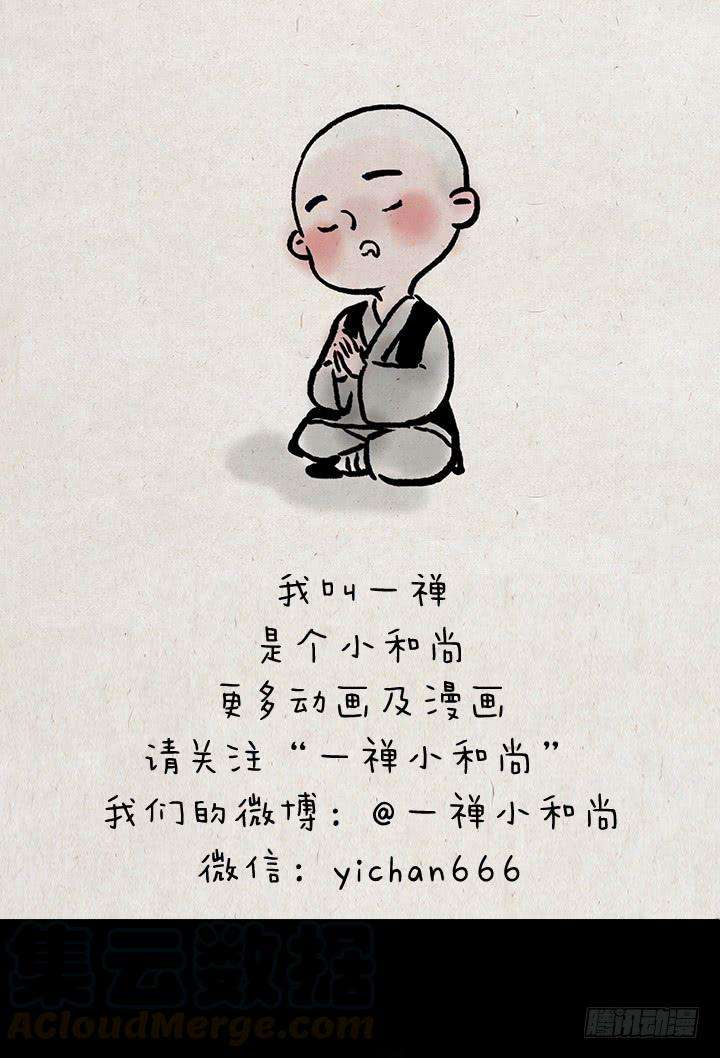 我叫一禅
是个小和尚
更多动画及漫画
请关注“一禅小和尚”
我们的微博：@一禅小和尚
微信：yichan666
集云数据
ACloudMerge.com
腾讯动漫